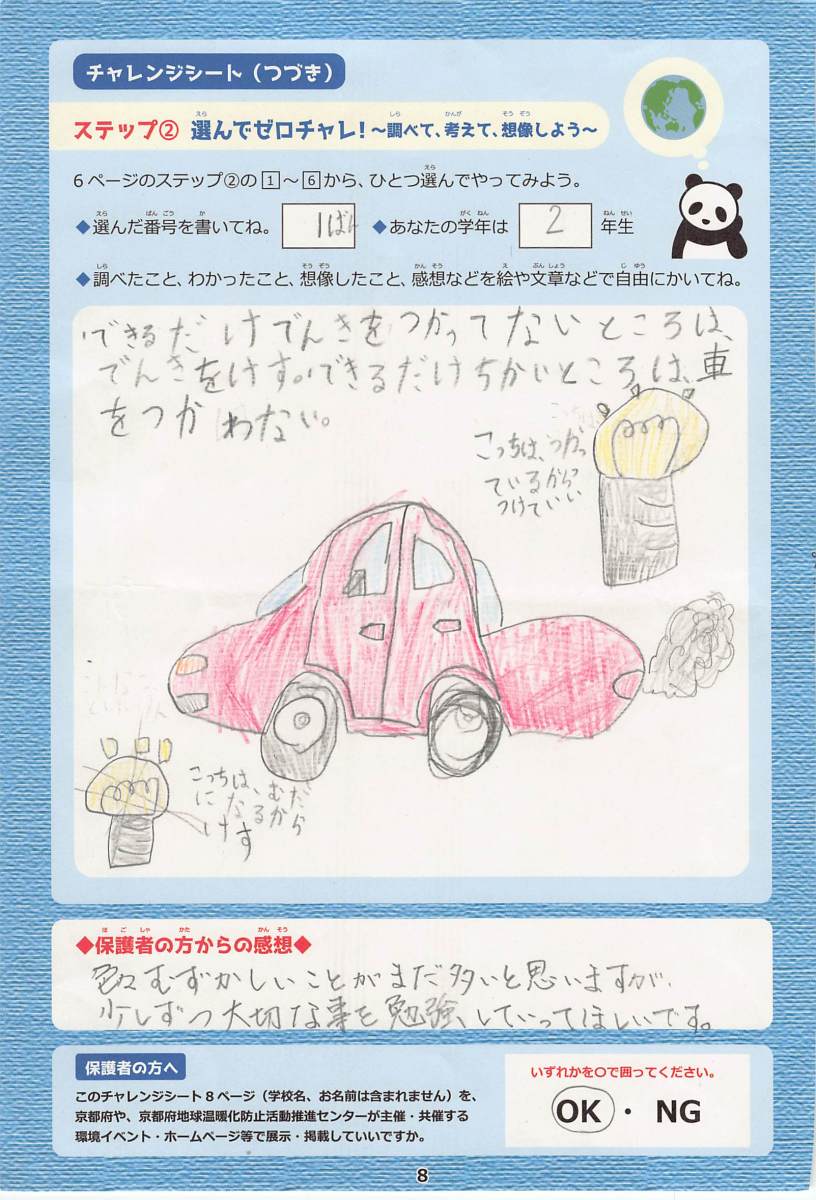 チャレンジシート（つづき）
ステップ② 選んでゼロチャレ！～調べて、考えて、想像しよう～
6ページのステップ②の1～6から、ひとつ選んでやってみよう。
◆選んだ番号を書いてね。 1ばん ◆あなたの学年は 2 年生
◆調べたこと、わかったこと、想像したこと、感想などを絵や文章などで自由にかいてね。
できるだけでんきをつかってないところは、
でんきをけす。できるだけちかいところは、車
をつかわない。
こっちは、つかっ
ているから
つけていい
こっちは、むだ
になるから
けす
◆保護者の方からの感想◆
色々むずかしいことがまだ多いと思いますが、
少しずつ大切な事を勉強していってほしいです。
保護者の方へ
このチャレンジシート8ページ（学校名、お名前は含まれません）を、
京都府や、京都府地球温暖化防止活動推進センターが主催・共催する
環境イベント・ホームページ等で展示・掲載していいですか。
いずれかを○で囲ってください。
OK ・ NG
8